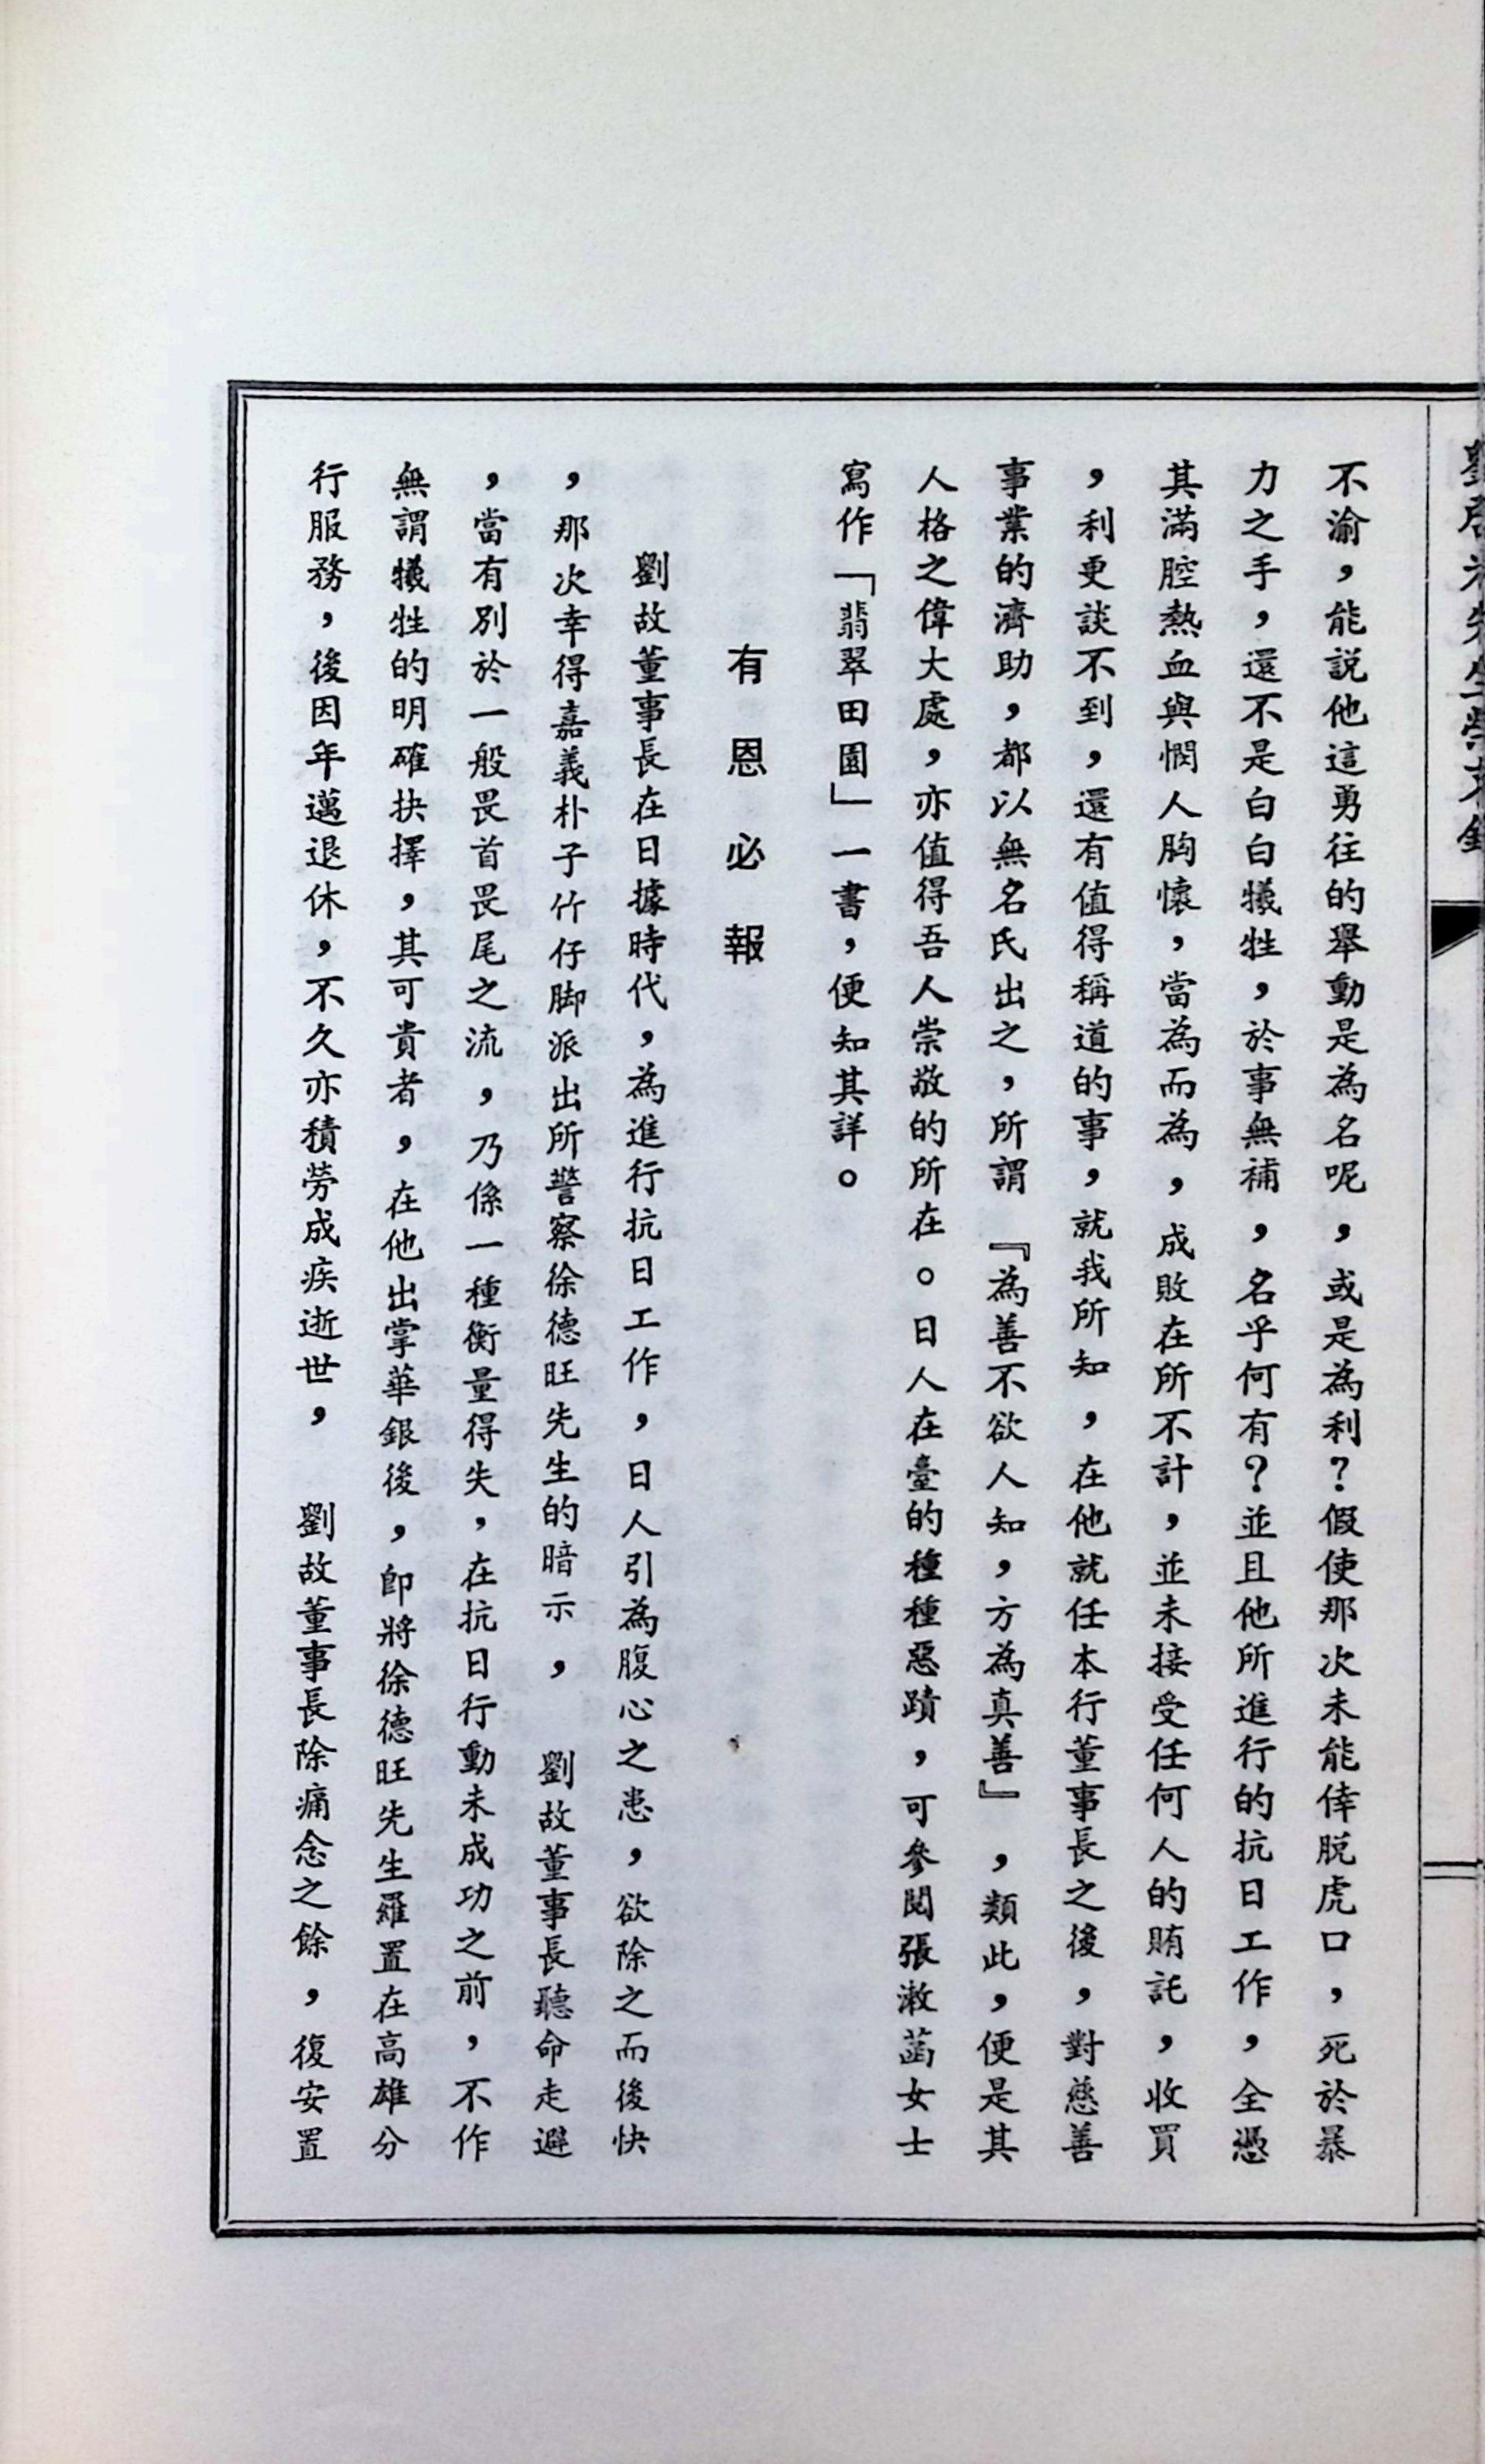 劉啓光先生榮哀錄
不渝，能説他這勇往的舉動是為名呢，或是為利？假使那次未能倖脱虎口，死於暴
力之手，還不是白白犧牲，於事無補，名乎何有？並且他所進行的抗日工作，全憑
其滿腔熱血與憫人胸懷，當為而為，成敗在所不計，並未接受任何人的賄託，收買
，利更談不到，還有值得稱道的事，就我所知，在他就任本行董事長之後，對慈善
事業的濟助，都以無名氏出之，所謂『為善不欲人知，方為真善』，類此，便是其
人格之偉大處，亦值得吾人崇敬的所在。日人在臺的種種惡蹟，可參閱張漱菡女士
寫作「翡翠田園」一書，便知其詳。
有恩必報
劉故董事長在日據時代，為進行抗日工作，日人引為腹心之患，欲除之而後快
，那次幸得嘉義朴子竹仔脚派出所警察徐德旺先生的暗示，　劉故董事長聽命走避
，當有別於一般畏首畏尾之流，乃係一種衡量得失，在抗日行動未成功之前，不作
無謂犧牲的明確抉擇，其可貴者，在他出掌華銀後，卽將徐德旺先生羅置在高雄分
行服務，後因年邁退休，不久亦積勞成疾逝世，　劉故董事長除痛念之餘，復安置